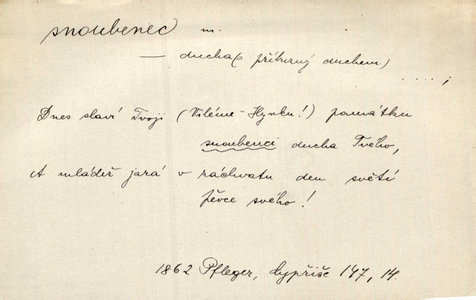 snoubenec m.
— ducha (příbuzný duchem)
....;
Dnes slaví Tvoji (Viléme-Hynku!) památku
snoubenci ducha Tvého,
A mládež jará v ráchvatu den světí
pěvce svého!
1862 Pfleger, Cypřiše 147, 14